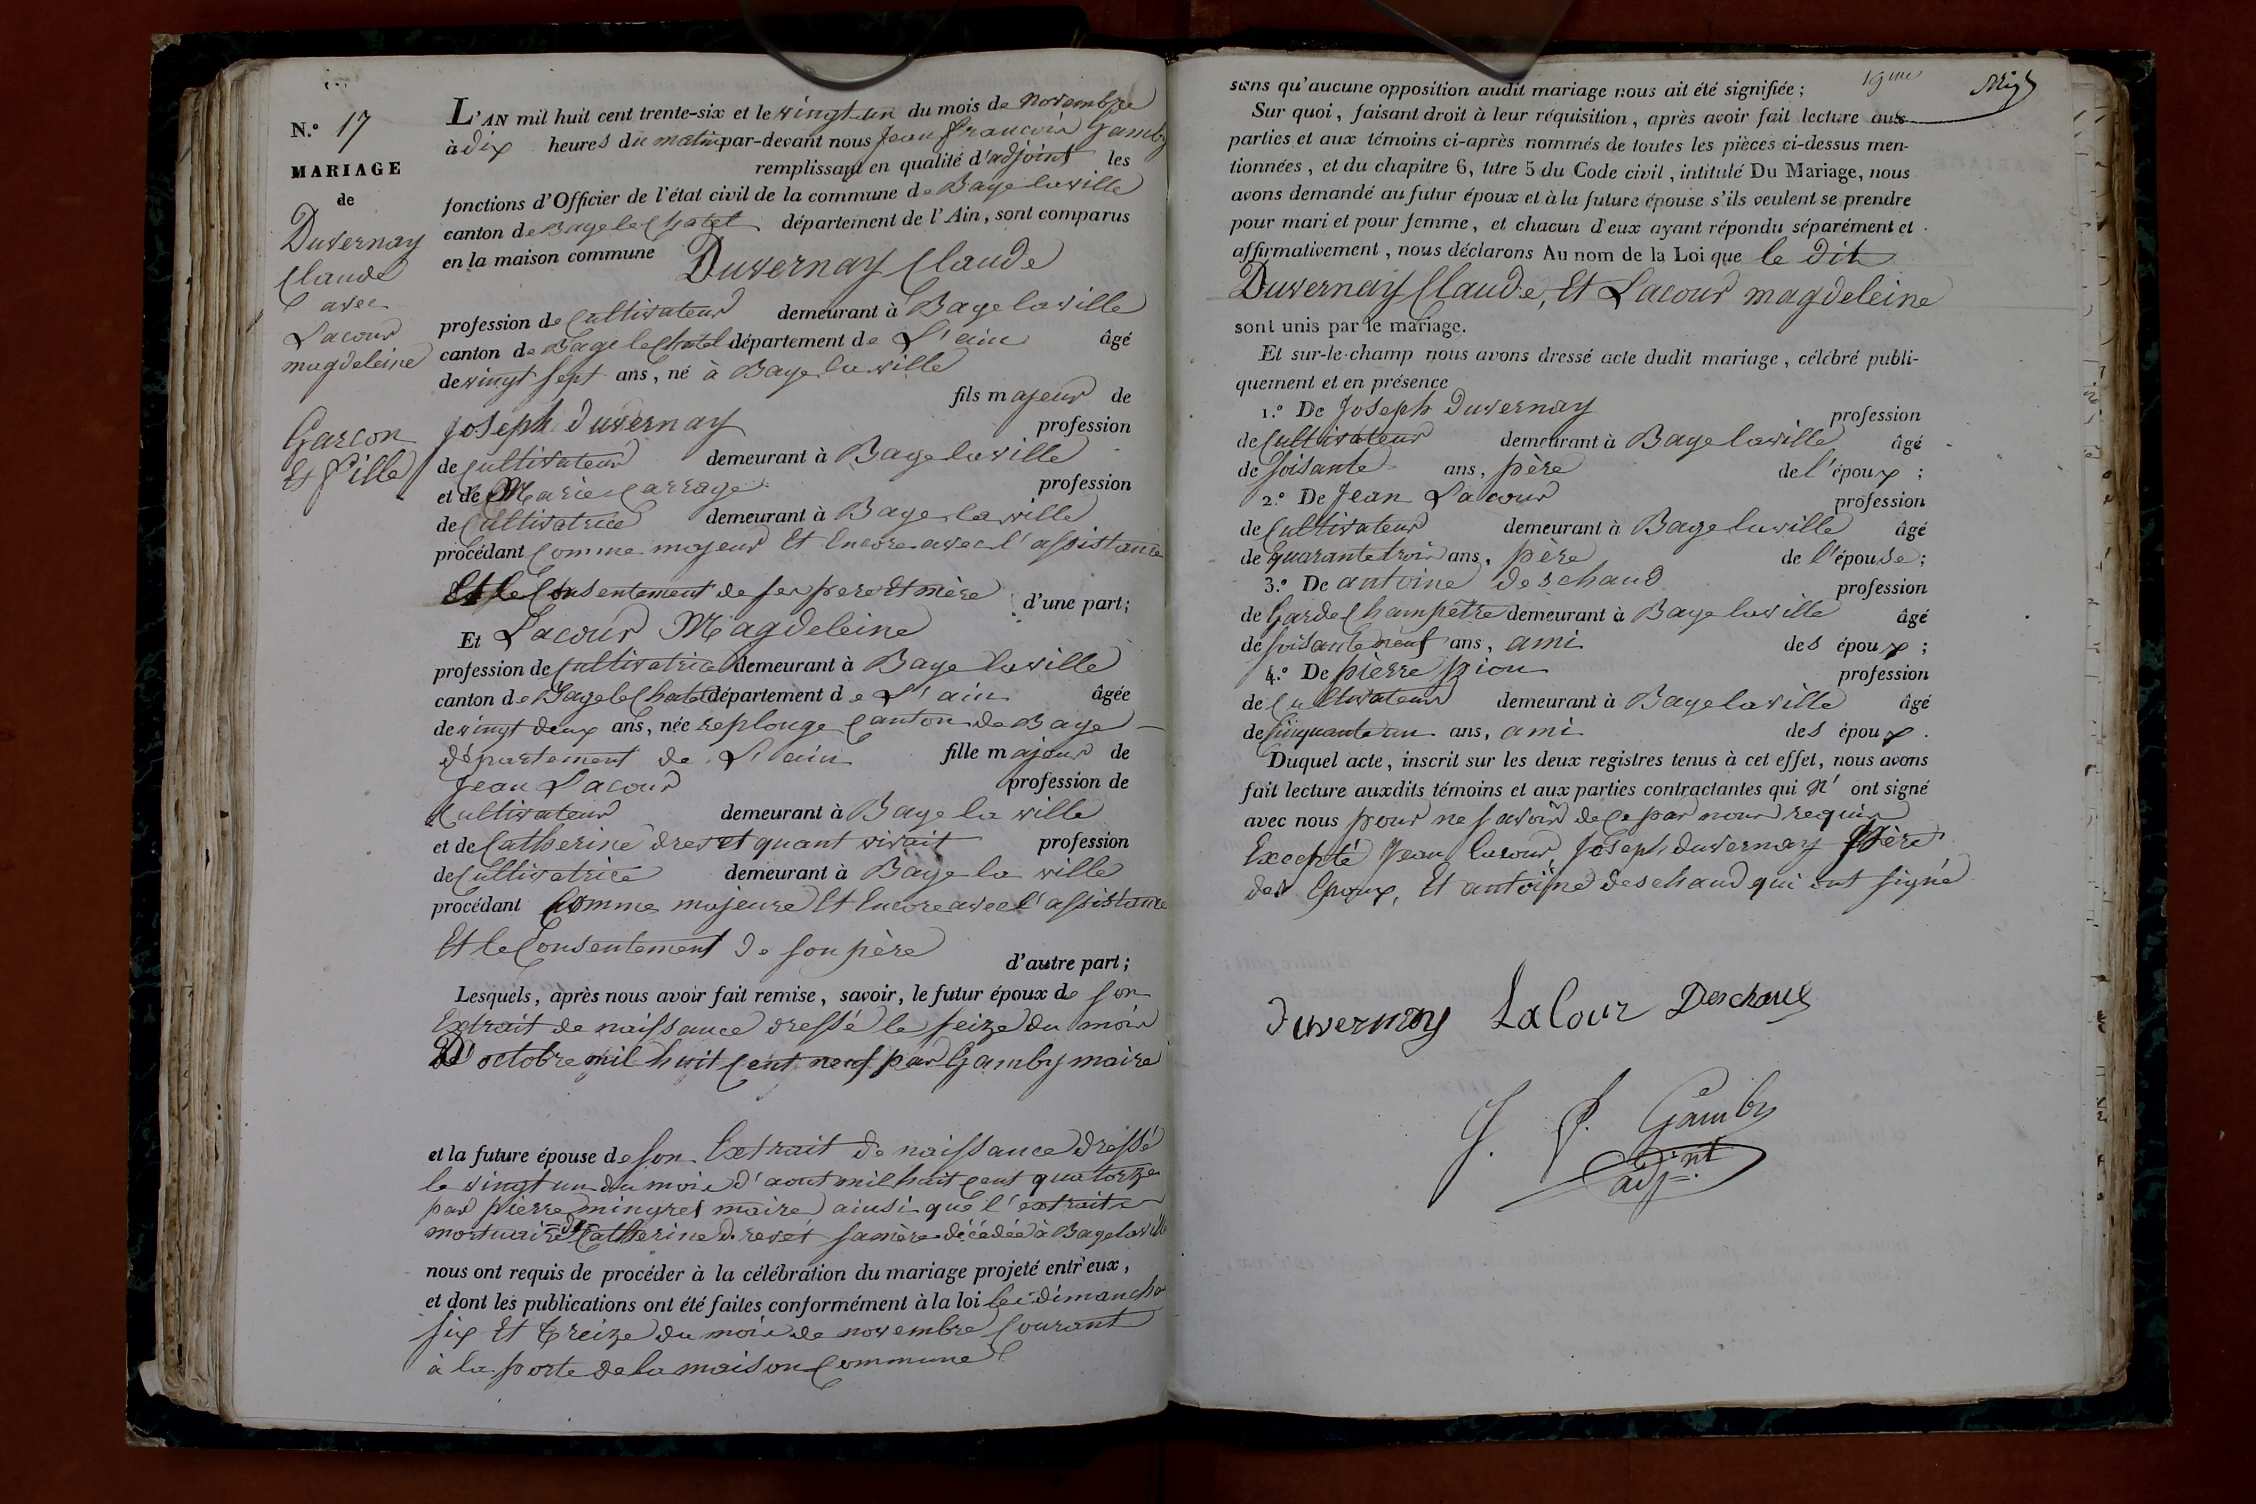 N.° 17
MARIAGE
de
Duvernay
Claude
avec
Lacour
magdeleine
Garcon
Et fille
L'AN mil huit cent trente-six et le vingt un du mois de novembre
à dix heures du matin par-devant nous Jean francois Gamby
remplissant en qualité d'adjoint les
fonctions d'Officier de l'état civil de la commune de Bage la ville
canton de Bage le Chatel département de l'Ain, sont comparus
en la maison commune Duvernay Claude
profession de Cultivateur demeurant à Bage la ville
canton de Bage le Chatel département de L'ain âgé
de vingt sept ans, né à Bage la ville
fils majeur de
Joseph duvernay profession
de Cultivateur demeurant à Bage la ville
et de Marie Carrage profession
de Cultivatrice demeurant à Bage la ville
procédant Comme majeur Et Encore avec l'assistance
Et le Consentement de ses pere Et mère d'une part;
Et Lacour Magdeleine
profession de Cultivatrice demeurant à Bage la ville
canton de Bage le Chatel département de L'ain âgée
de vingt deux ans, née replonge Canton de Bage
département de L'ain fille majeur de
Jean Lacour profession de
Cultivateur demeurant à Bage la ville
et de Catherine drevet quant vivait profession
de Cultivatrice demeurant à Bage la ville
procédant Comme majeure Et Encore avec l'assistance
Et le Consentement de son père
d'autre part;
Lesquels, après nous avoir fait remise, savoir, le futur époux de son
Extrait de naissance dressé le seize du mois
D'octobre mil huit Cent neuf par Gamby maire
et la future épouse de son Extrait de naissance dressé
le vingt un du mois d'aout mil huit cent quatorze
par pierre mingret maire ainsi que l'extrait
mortuaire de Catherine drevet sa mère décédée à Bage la ville
nous ont requis de procéder à la célébration du mariage projeté entr'eux,
et dont les publications ont été faites conformément à la loi les dimanche
six Et treize du mois de novembre Courant
à la porte de la maison Commune
sans qu'aucune opposition audit mariage nous ait été signifiée;
Sur quoi, faisant droit à leur réquisition, après avoir fait lecture aux
parties et aux témoins ci-après nommés de toutes les pièces ci-dessus men-
tionnées, et du chapitre 6, titre 5 du Code civil, intitulé Du Mariage, nous
avons demandé au futur époux et à la future épouse s'ils veulent se prendre
pour mari et pour femme, et chacun d'eux ayant répondu séparément et
affirmativement, nous déclarons Au nom de la Loi que le dit
Duvernay Claude, Et Lacour magdeleine
sont unis par le mariage.
Et sur-le-champ nous avons dressé acte dudit mariage, célébré publi-
quement et en présence
1.° De Joseph duvernay profession
de Cultivateur demeurant à Bage la ville âgé
de soisante ans, père de l'époux;
2.° De Jean Lacour profession
de Cultivateur demeurant à Bage la ville âgé
de quarante trois ans, père de l'épouse;
3.° De antoine deschaud profession
de Garde Champêtre demeurant à Bage la ville âgé
de soisante neuf ans, ami des époux;
4.° De pierre pion profession
de Cultivateur demeurant à Bage la ville âgé
de Cinquante un ans, ami des époux.
Duquel acte, inscrit sur les deux registres tenus à cet effet, nous avons
fait lecture auxdits témoins et aux parties contractantes qui n'ont signé
avec nous pour ne savoir de ce par nous requis
Excepté Jean lacour, Joseph duvernay père
des Epoux, Et antoine deschaud qui ont signé
duvernay Lacour Deschaud
J. f. Gamby
adjnt